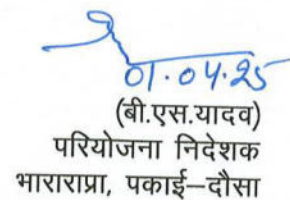 01.04.25
(बी.एस.यादव)
परियोजना निदेशक
भाराराप्रा, पकाई–दौसा